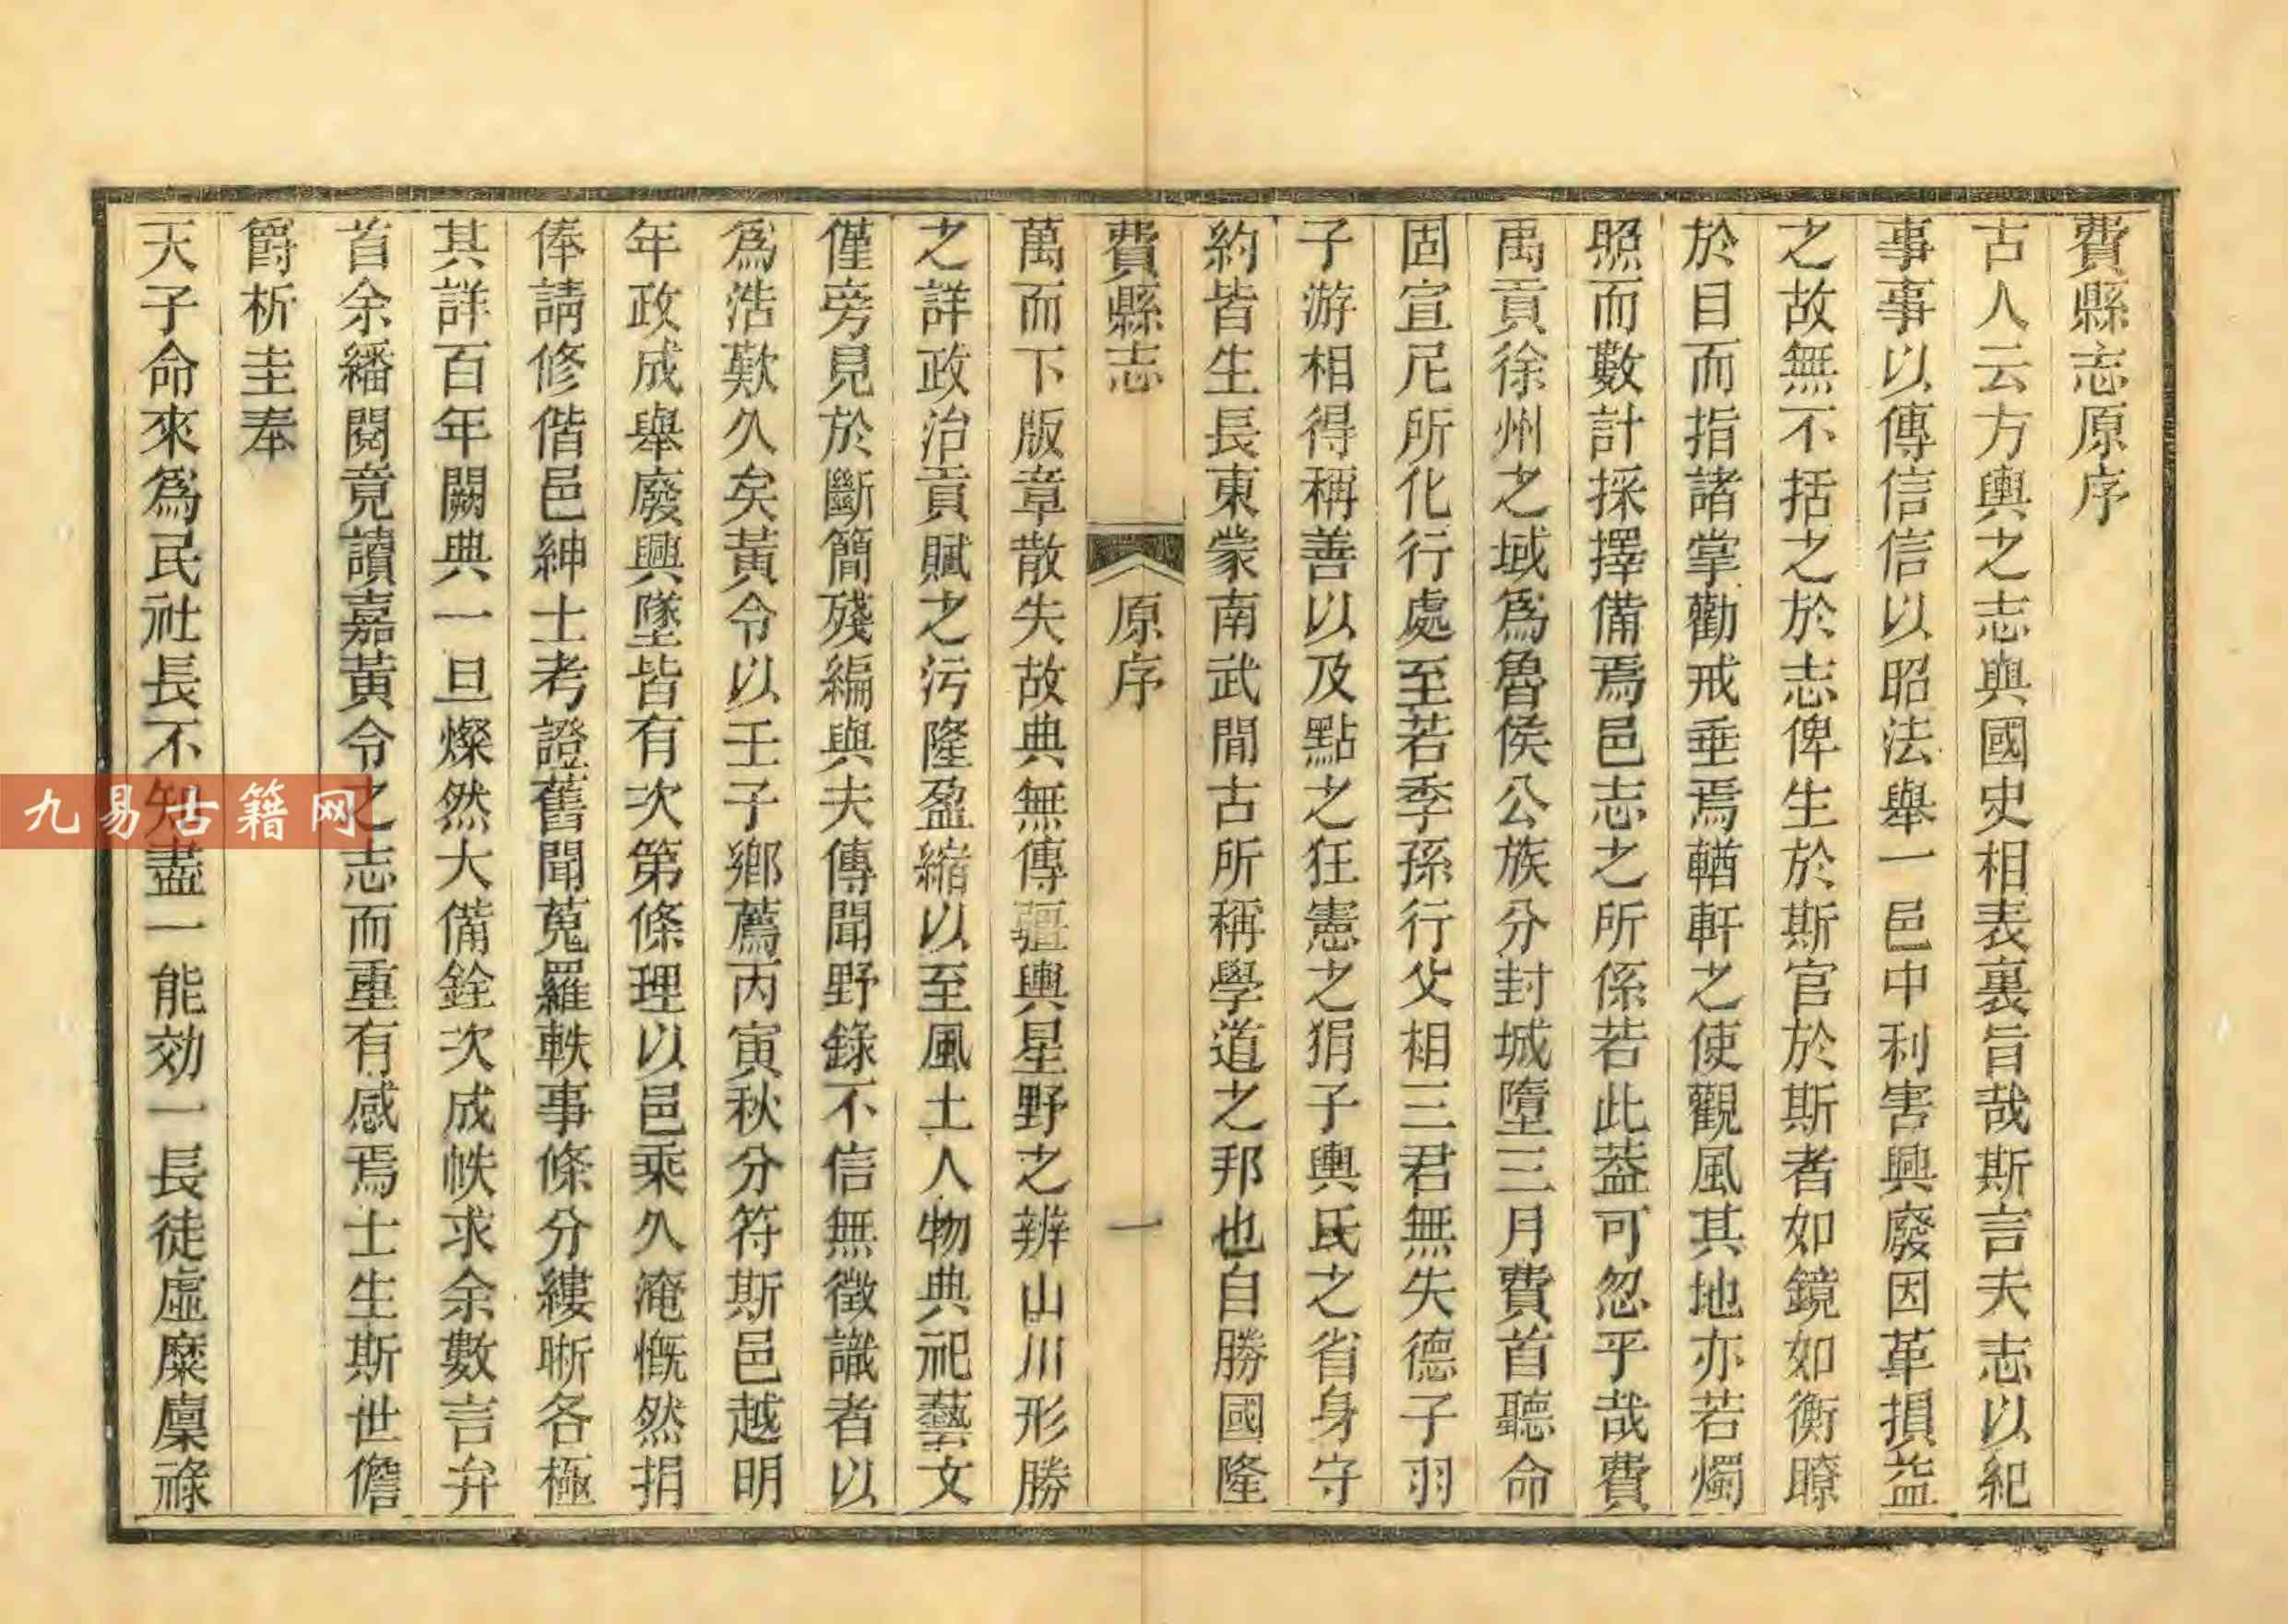 費縣志原序
古人云方輿之志與國史相表裏旨哉斯言夫志以紀
事事以傳信信以昭法舉一邑中利害興廢因革損益
之故無不括之於志俾生於斯官於斯者如鏡如衡瞭
於目而指諸掌勸戒垂焉輶軒之使觀風其地亦若燭
照而數計採擇備焉邑志之所係若此葢可忽乎哉費
禹貢徐州之域爲魯侯公族分封城墮三月費首聽命
固宣尼所化行處至若季孫行父相三君無失德子羽
子游相得稱善以及點之狂憲之狷子輿氏之省身守
約皆生長東蒙南武閒古所稱學道之邦也自勝國隆
費縣志 原序 一
萬而下版章散失故典無傳疆輿星野之辨山川形勝
之詳政治貢賦之污隆盈縮以至風土人物典祀藝文
僅旁見於斷簡殘編與夫傳聞野錄不信無徵識者以
爲浩歎久矣黃令以壬子鄉薦丙寅秋分符斯邑越明
年政成舉廢興墜皆有次第條理以邑乘久淹慨然捐
俸請修偕邑紳士考證舊聞蒐羅軼事條分縷晰各極
其詳百年闕典一旦燦然大備銓次成帙求余數言弁
首余繙閱竟讀嘉黃令之志而重有感焉士生斯世儋
爵析圭奉
天子命來爲民社長不知盡一能効一長徒虛糜廩祿
九易古籍网